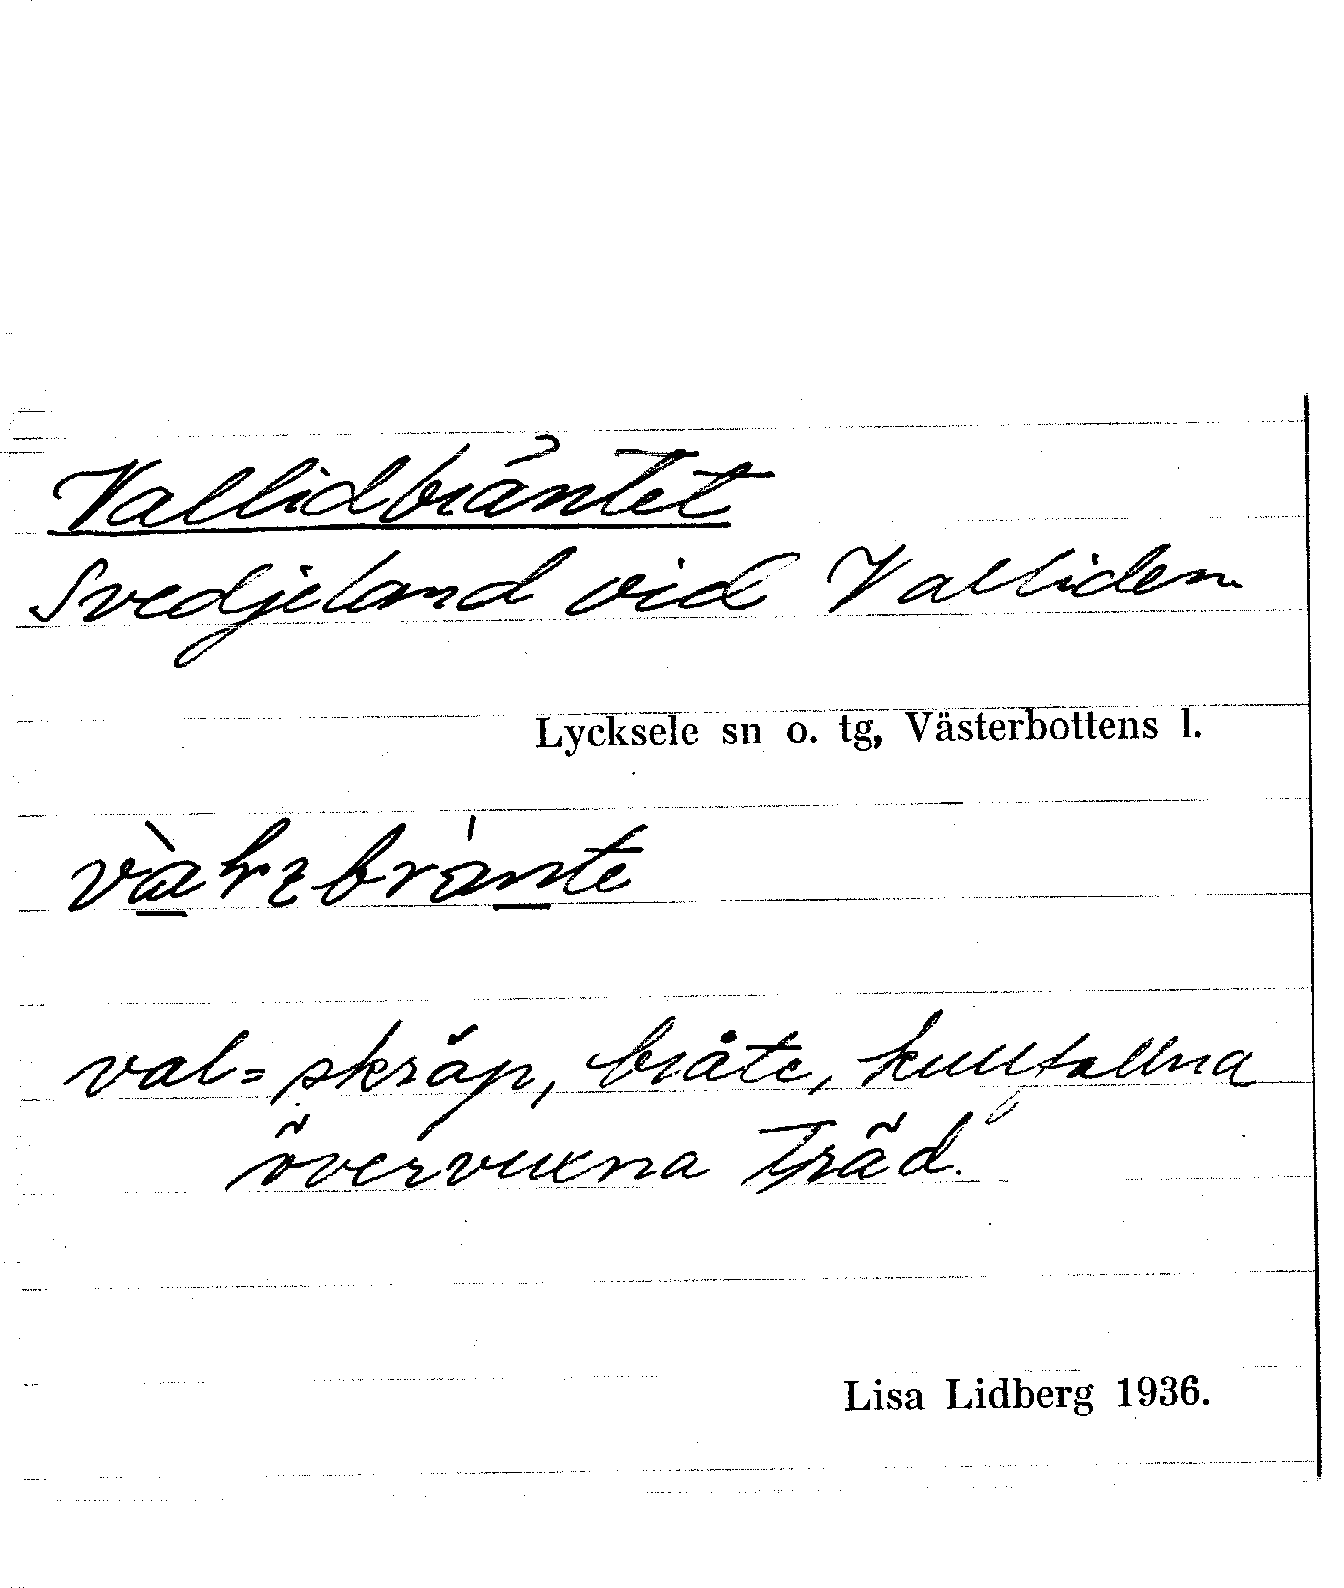 Vallidbräntet
Svedjeland vid Valliden
Lycksele sn o. tg, Västerbottens l.
val = skräp, bråte, kullfallna
övervuxna träd.
Lisa Lidberg 1936.